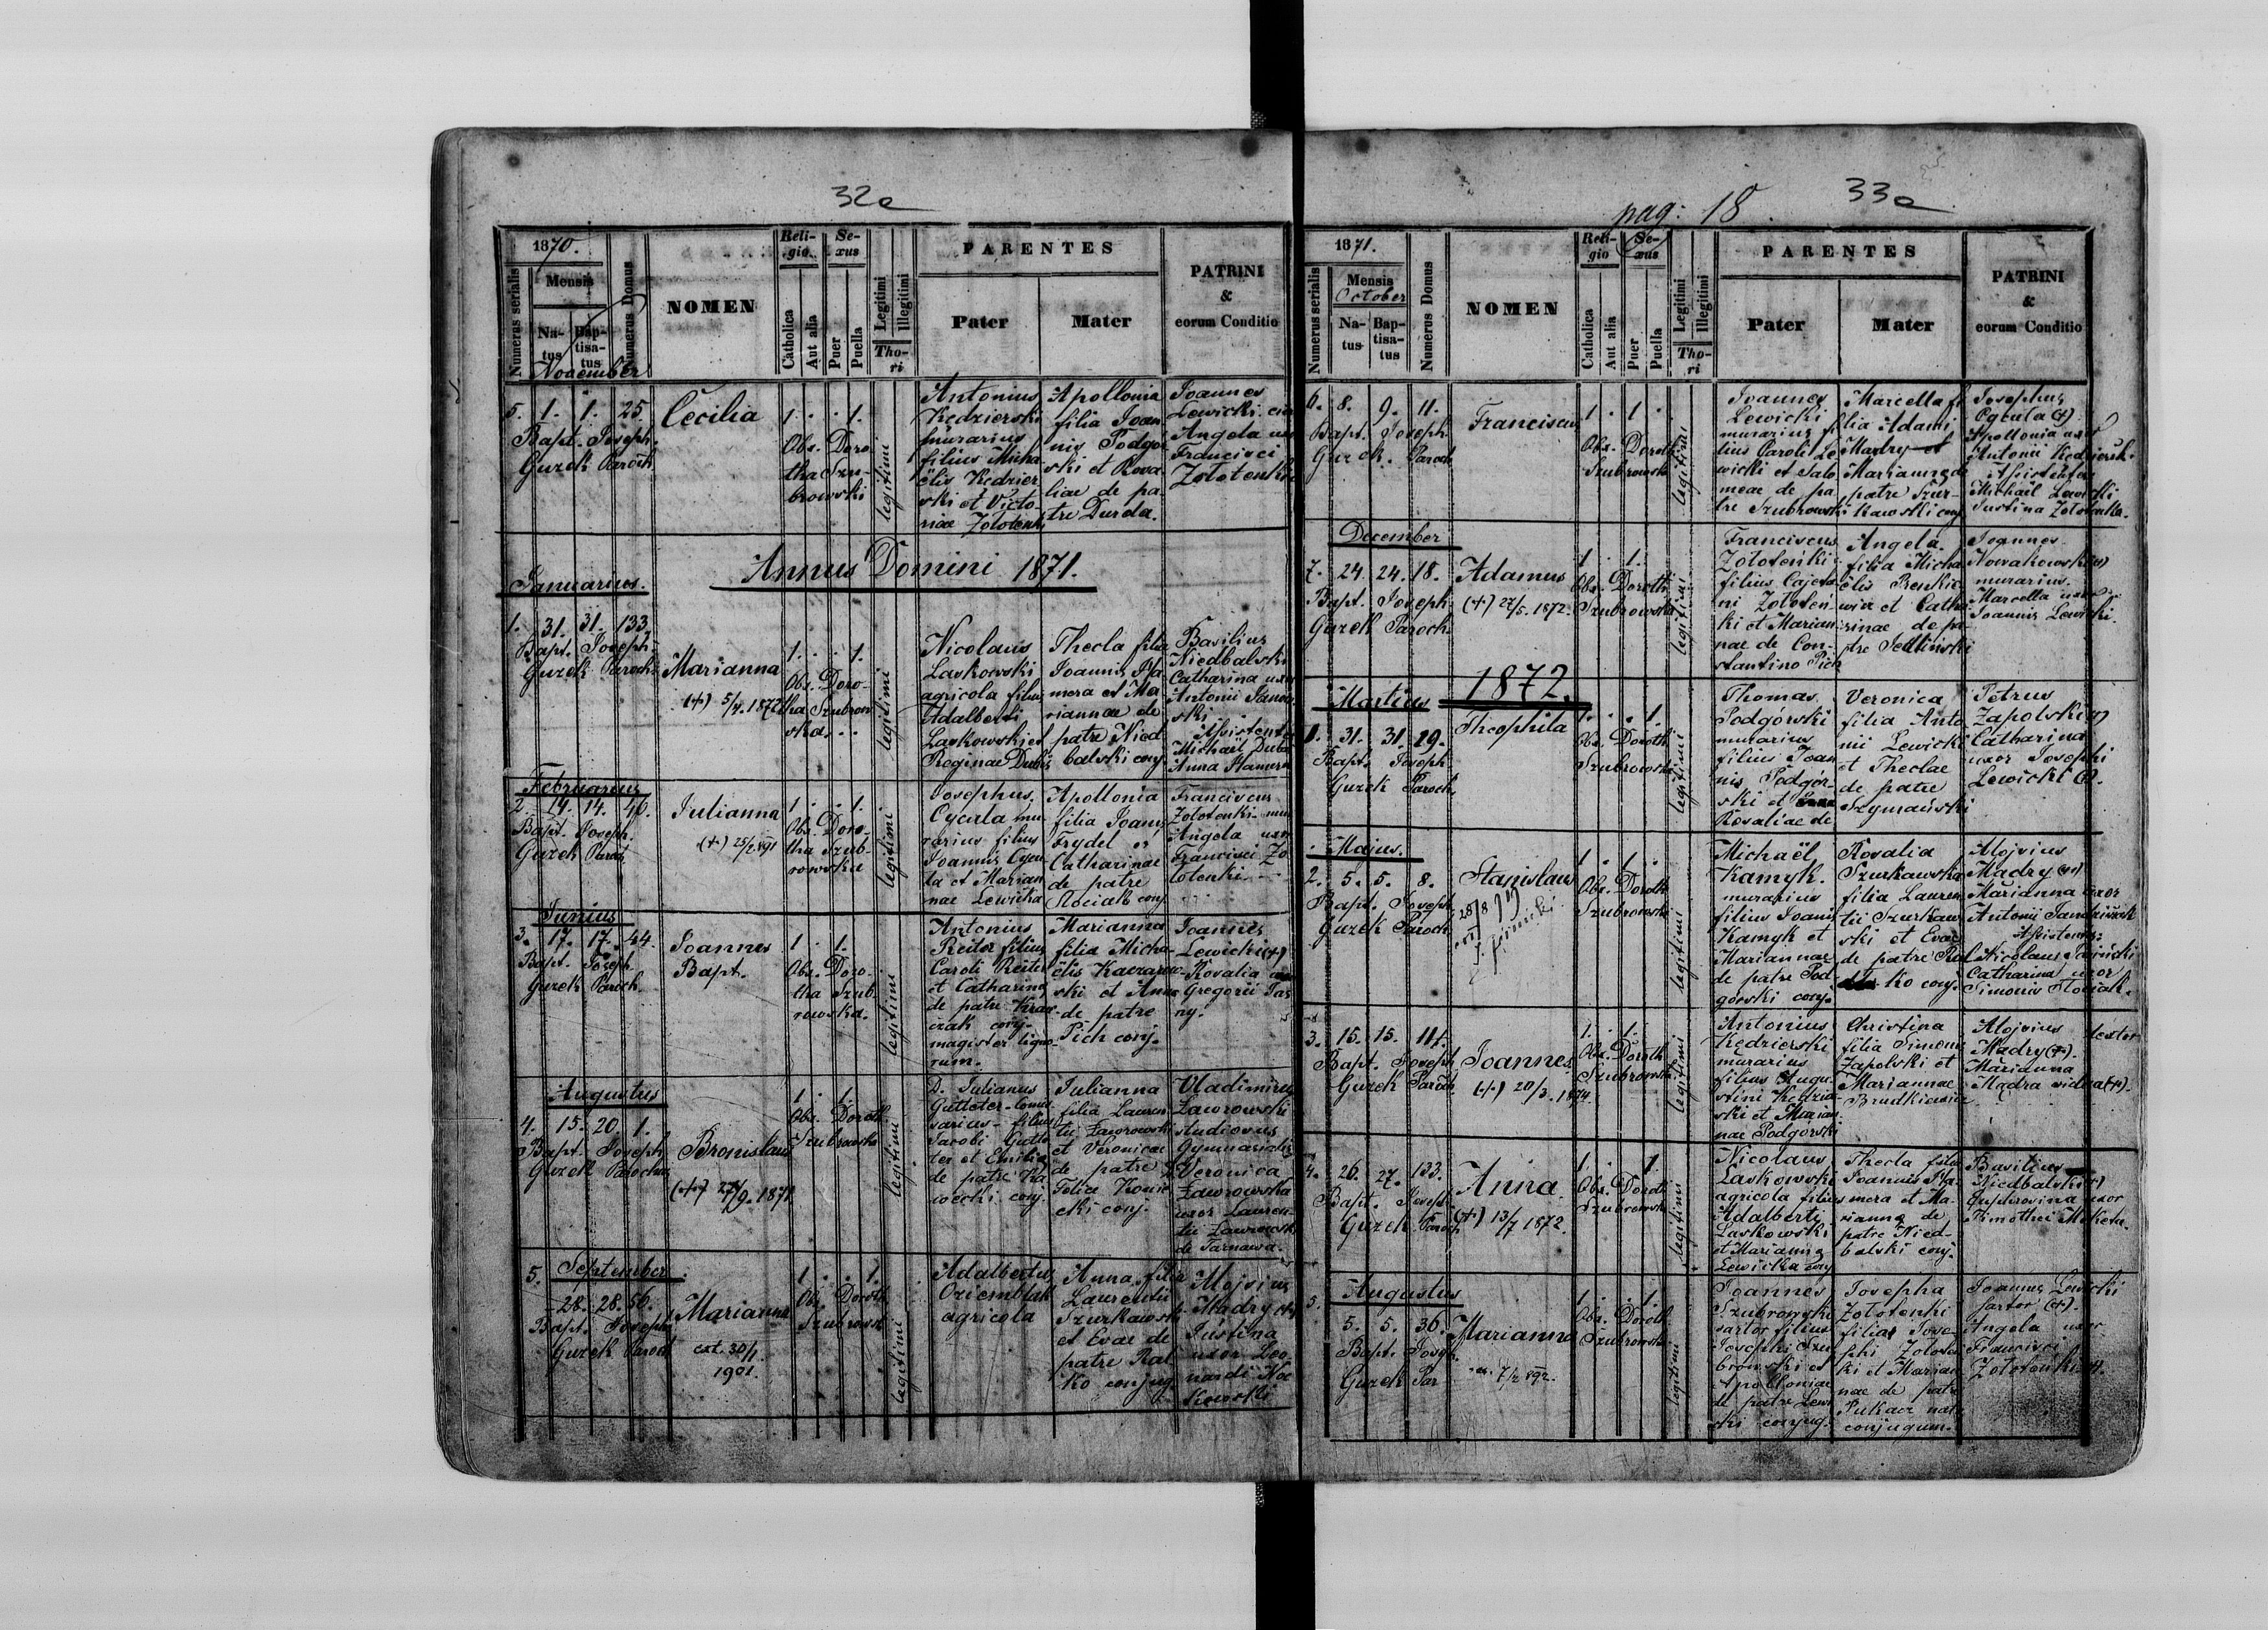 32a
1870.
Numerus serialis
Mensis
Natus
Baptisatus
Numerus Domus
NOMEN
Religio
Catholica
Aut alia
Sexus
Puer
Puella
Legitimi
Illegitimi
Thori
PARENTES
Pater
Mater
PATRINI
&
eorum Conditio
November
5. 1. 1. 25
Bapt. Joseph.
Guzek Paroch.
Cecilia
1. . . 1.
Obs. Doro
tha Szu-
browski
legitimi
Antonius
Kędzierski
murarius
filius Micha
ëlis Kędzier
ski et Victo
riae Zołotenki
Apollonia
filia Joan
nis Podgór
ski et Rosa
liae de pa
tre Durda.
Joannes
Lewicki
Angela uxor
Francisci
Zołotenki
Annus Domini 1871.
Januarius.
1. 31. 31. 133
Bapt. Joseph
Guzek Paroch.
Marianna
(+) 5/4. 1872
1. . . 1.
Obs. Doro-
tha Szubrow
ska. . .
legitimi
Nicolaus
Laskowski
agricola filius
Adalberti
Laskowski et
Reginae Dubis
Thecla filia
Joannis Ha
mera et Ma
riannae de
patre Nied
balski conj.
Basilius
Niedbalski
Catharina uxor
Antonii
ski
Assistentes
Michaël Duba
Anna Hamera
Februarius
2. 14. 14. 46.
Bapt. Joseph.
Guzek Paroch.
Julianna
(+) 25/2 891
1. . . 1.
Obs. Doro-
tha Szub-
rowska
legitimi
Josephus
Cycula mu
rarius filius
Joannis Cycu
la et Marian
nae Lewicka
Apollonia
filia Joannis
Frydel et
Catharinae
de patre
Stociak conj.
Franciscus
Zołotenki mur
Angela uxor
Francisci Zo
łotenki
Junius
3. 17. 17. 44.
Bapt. Joseph
Guzek Paroch.
Joannes
Bapt.
1 . 1.
Obs. Doro-
tha Szub-
rowska.
legitimi
Antonius
Reiter filius
Caroli Reiter
et Catharina
de patre Kraw
czak conj.
magister ligno-
rum.
Marianna
filia Micha-
ëlis Kaczarow-
ski et Anna
de patre
Pich conj.
Joannes
Lewicki (+)
Rosalia uxor
Gregorii Tar
ny.
Augustus
4. 15. 20. 1.
Bapt. Joseph
Guzek Parochus
Bronislaus
(+) 27/9. 1871
1 . 1.
Obs. Doroth
Szubrowska
legitimi
D. Julianus
Gutteter Comis
sarius filius
Jacobi Gutte
ter et Emilia
de patre Ka
wecki conj.
Julianna
filia Lauren
tii Zawrowski
et Veronicae
de patre
Felice Konie
cki conj.
Vladimirus
Zawrowski
studiosus
Gymnasialis
Veronica
Zawrowska
uxor Lauren-
tii Zawrowski
de Tarnawa.
September
5. 28. 28. 56.
Bapt. Joseph
Guzek Paroch
Marianna
cst. 30/1
1901.
1 . . 1.
Obs. Doroth
Szubrowsk
legitimi
Adalbertus
Oziemblak
agricola
Anna filia
Laurentii
Szurkawski
et Evae de
patre Rat
ko conjug
Alojsius
Madry (+)
Justina
uxor Leo
nardi Noc
kowski
pag: 18.
33a
1871.
Numerus serialis
Mensis
October
Natus
Baptisatus
Numerus Domus
NOMEN
Religio
Catholica
Aut alia
Sexus
Puer
Puella
Legitimi
Illegitimi
Thori
PARENTES
Pater
Mater
PATRINI
&
eorum Conditio
6. 8. 9. 11.
Bapt. Joseph
Guzek. Paroch
Franciscus
1 . 1 .
Obs. Doroth
Szubrowska
legitimi
Joannes
Lewicki
murarius fi
lius Caroli Le
wicki et Salo
meae de pa
tre Szubrowski
Marcella fi
lia Adami
Madry et
Marianna de
patre Szur-
kawski conj
Josephus
Cycula (+)
Apollonia uxor
Antonii Kędzierski.
Assistentes
Michaël Lewicki
Justina Zołotenka.
December
7. 24. 24. 18.
Bapt. Joseph
Guzek Paroch.
Adamus
(+) 27/5. 1872.
1 . 1.
Obs. Doroth
Szubrowska
legitimi
Franciscus
Zołoteński
filius Cajeta
ni Zołoteń
ki et Marian
nae de Con-
stantino Pich
Angela
filia Micha
ëlis Benkie
wicz et Catha
rinae de pa-
tre Jedliński
Joannes
Nowakowski (+)
murarius.
Marcella uxor
Joannis Lewicki.
1872.
Martius
1. 31. 31. 29.
Bapt. Joseph
Guzek Paroch.
Theophila
1. . . 1.
Obs. Doroth
Szubrowska
legitimi
Thomas
Podgórski
murarius
filius Joan
nis Podgór-
ski et
Rosaliae de
Veronica
filia Anto
nii Lewicki
et Theclae
de patre
Szymański
Petrus
Zapolski (+)
Catharina
uxor Josephi
Lewicki (+).
Majus.
2. 5. 5. 8.
Bapt. Joseph
Guzek Paroch
Stanislaus
1 . 1 .
Obs. Doroth
Szubrowska
legitimi
Michaël
Kamyk.
murarius
filius Joannis
Kamyk et
Mariannae
de patre Pod
górski conj.
Rosalia
Szurkawska
filia Lauren
tii Szurkaw
ski et Evae
de patre Rat
ko conj.
Alojsius
Madry (+)
Marianna uxor
Antonii
Assistentes:
Nicolaus
Catharina uxor
Simonis Stociak.
3. 15. 15. 114.
Bapt. Joseph
Guzek Paroch
Joannes
(+) 20/3. 1874.
1. . 1.
Obs. Doroth
Szubrowska
legitimi
Antonius
Kędzierski
murarius
filius Augu-
stini Kędzier
ski et Marian
nae Podgórski
Christina
filia Simonis
Zapolski et
Mariannae
Brudkiewicz
Alojsius
Madry (+).
Marianna
Madra vidua (+).
4. 26. 27. 133.
Bapt. Joseph
Guzek Paroch
Anna
(+) 13/7 1872.
1. . . 1
Obs. Doroth
Szubrowska
legitimi
Nicolaus
Laskowski
agricola filius
Adalberti
Laskowski
et Marianna
Lewicka conj
Thecla filia
Joannis Ha
mera et Ma-
rianna de
patre Nied-
balski conj.
Basilius
Niedbalski (+)
Euphrosina uxor
Timothei Meketa.
Augustus
5. 5. 5. 36.
Bapt. Joseph.
Guzek Par
Marianna
7/2 892.
1. . . 1.
Obs. Doroth
Szubrowska
legitimi
Joannes
Szubrowski
sartor filius
Josephi Szu
browski et
Apolloniae
de patre Lewi
cki conjug.
Josepha
Zołotenki
filia Jose-
phi Zołoten
ki et Marian
nae de patre
Pukacz nata
conjugum.
Joannes Lewicki
sartor (+).
Angela uxor
Francisci
Zołotenki (+).